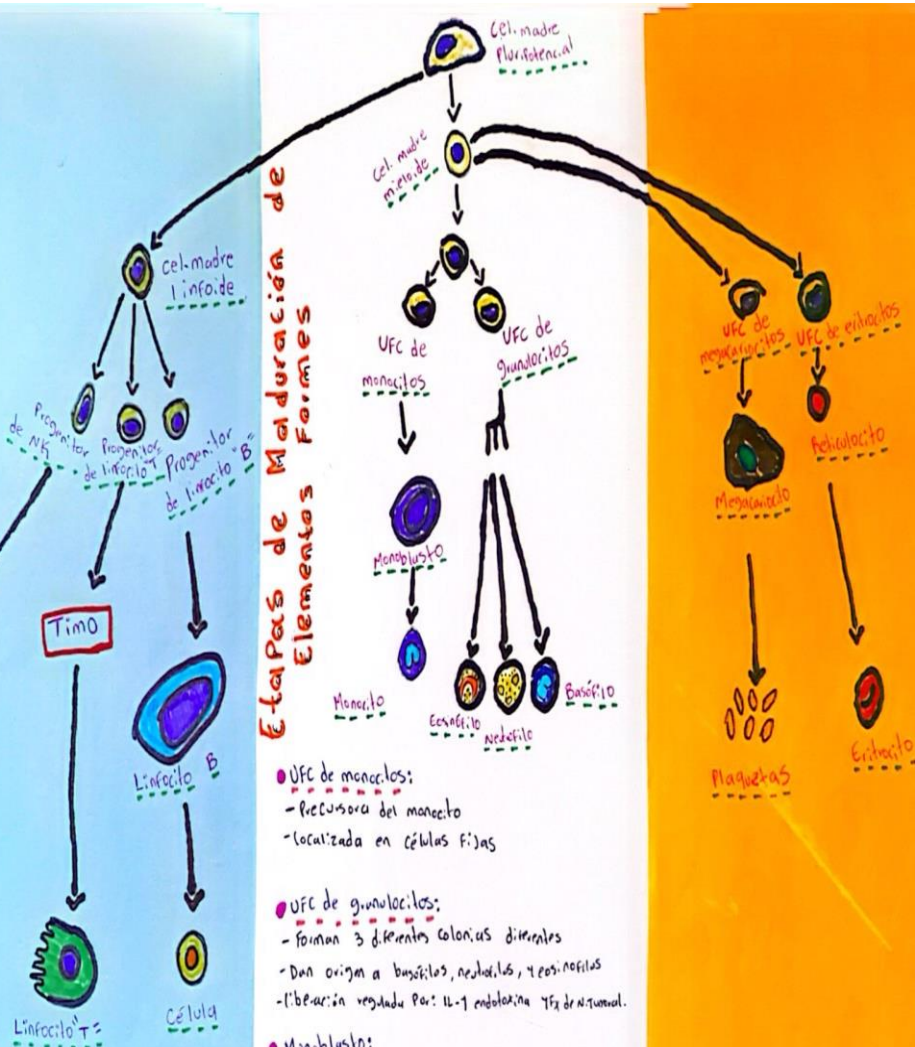 Cel. madre
Pluripotencial
Cel. madre
mieloide
Etapas de Maduración de
Elementos Formes
Cel. madre
linfoide
Progenitor
de NK
Progenitor
de linfocito "T"
Progenitor
de linfocito "B"
Timo
Linfocito B
Linfocito "T"
Célula
UFC de
monocitos
UFC de
granulocitos
Monoblasto
Monocito
Eosnófilo
Neutófilo
Basófilo
UFC de
megacariocitos
UFC de eritrocitos
Reticulocito
Megacariocito
Plaquetas
Eritrocito
UFC de monocitos:
- Precursora del monocito
- localizada en células Fijas
UFC de granulocitos:
- Forman 3 diferentes colonias diferentes
- Dan origen a basófilos, neutrofilos, y eosinofilos
- liberación regulada Por: IL-1 endotoxina y Fx de N. Tumoral.
Monoblasto: